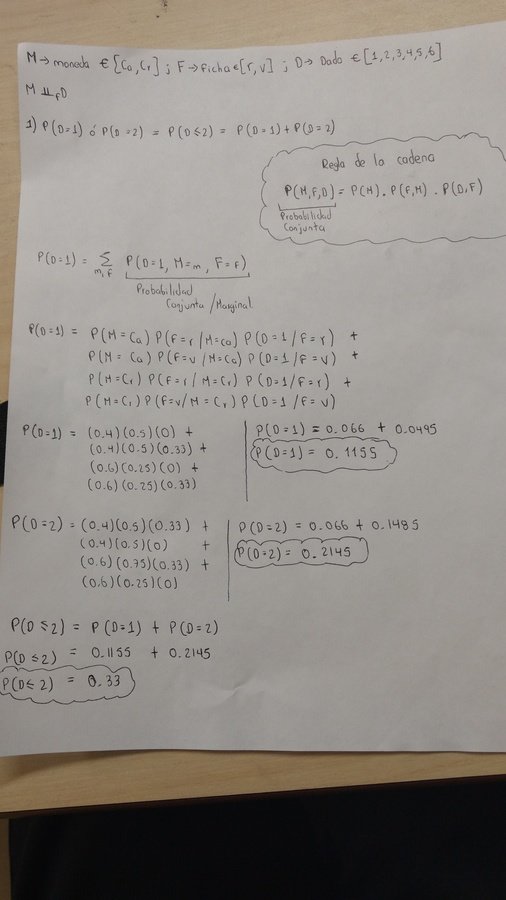 M → moneda ∈ {Ca, Cr} ; F → ficha ∈ [r, v] ; D → Dado ∈ [1,2,3,4,5,6]
M ⫫_F D
1) P(D=1) ó P(D=2) = P(D≤2) = P(D=1) + P(D=2)
Regla de la cadena
P(M,F,D) = P(M) . P(F,M) . P(D,F)
Probabilidad
Conjunta
P(D=1) = ∑ m,f P(D=1, M=m, F=f)
Probabilidad
Conjunta / Marginal
P(D=1) = P(M=Ca) P(F=r / M=ca) P(D=1 / F=r) +
P(M=Ca) P(F=v / M=Ca) P(D=1 / F=v) +
P(M=Cr) P(F=r / M=Cr) P(D=1 / F=r) +
P(M=Cr) P(F=v / M=Cr) P(D=1 / F=v)
P(D=1) = (0.4)(0.5)(0) +
(0.4)(0.5)(0.33) +
(0.6)(0.25)(0) +
(0.6)(0.25)(0.33)
P(D=1) = 0.066 + 0.0495
P(D=1) = 0.1155
P(D=2) = (0.4)(0.5)(0.33) +
(0.4)(0.5)(0) +
(0.6)(0.75)(0.33) +
(0.6)(0.25)(0)
P(D=2) = 0.066 + 0.1485
P(D=2) = 0.2145
P(D≤2) = P(D=1) + P(D=2)
P(D≤2) = 0.1155 + 0.2145
P(D≤2) = 0.33